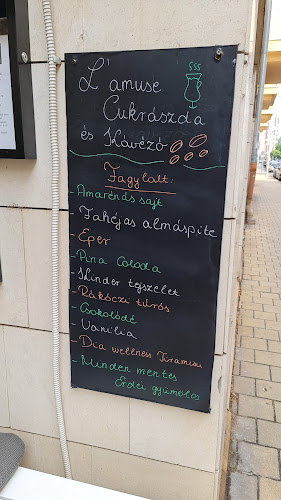 L'amuse
Cukrászda
és Kávézó
Fagylalt:
- Amarénás sajt
- Fahéjas almáspite
- Eper
- Pina Colada
- Kinder tejszelet
- Rákóczi túrós
- Csokoládé
- Vanília
- Dia wellness Tiramisu
- Minden mentes
Erdei gyümölcs